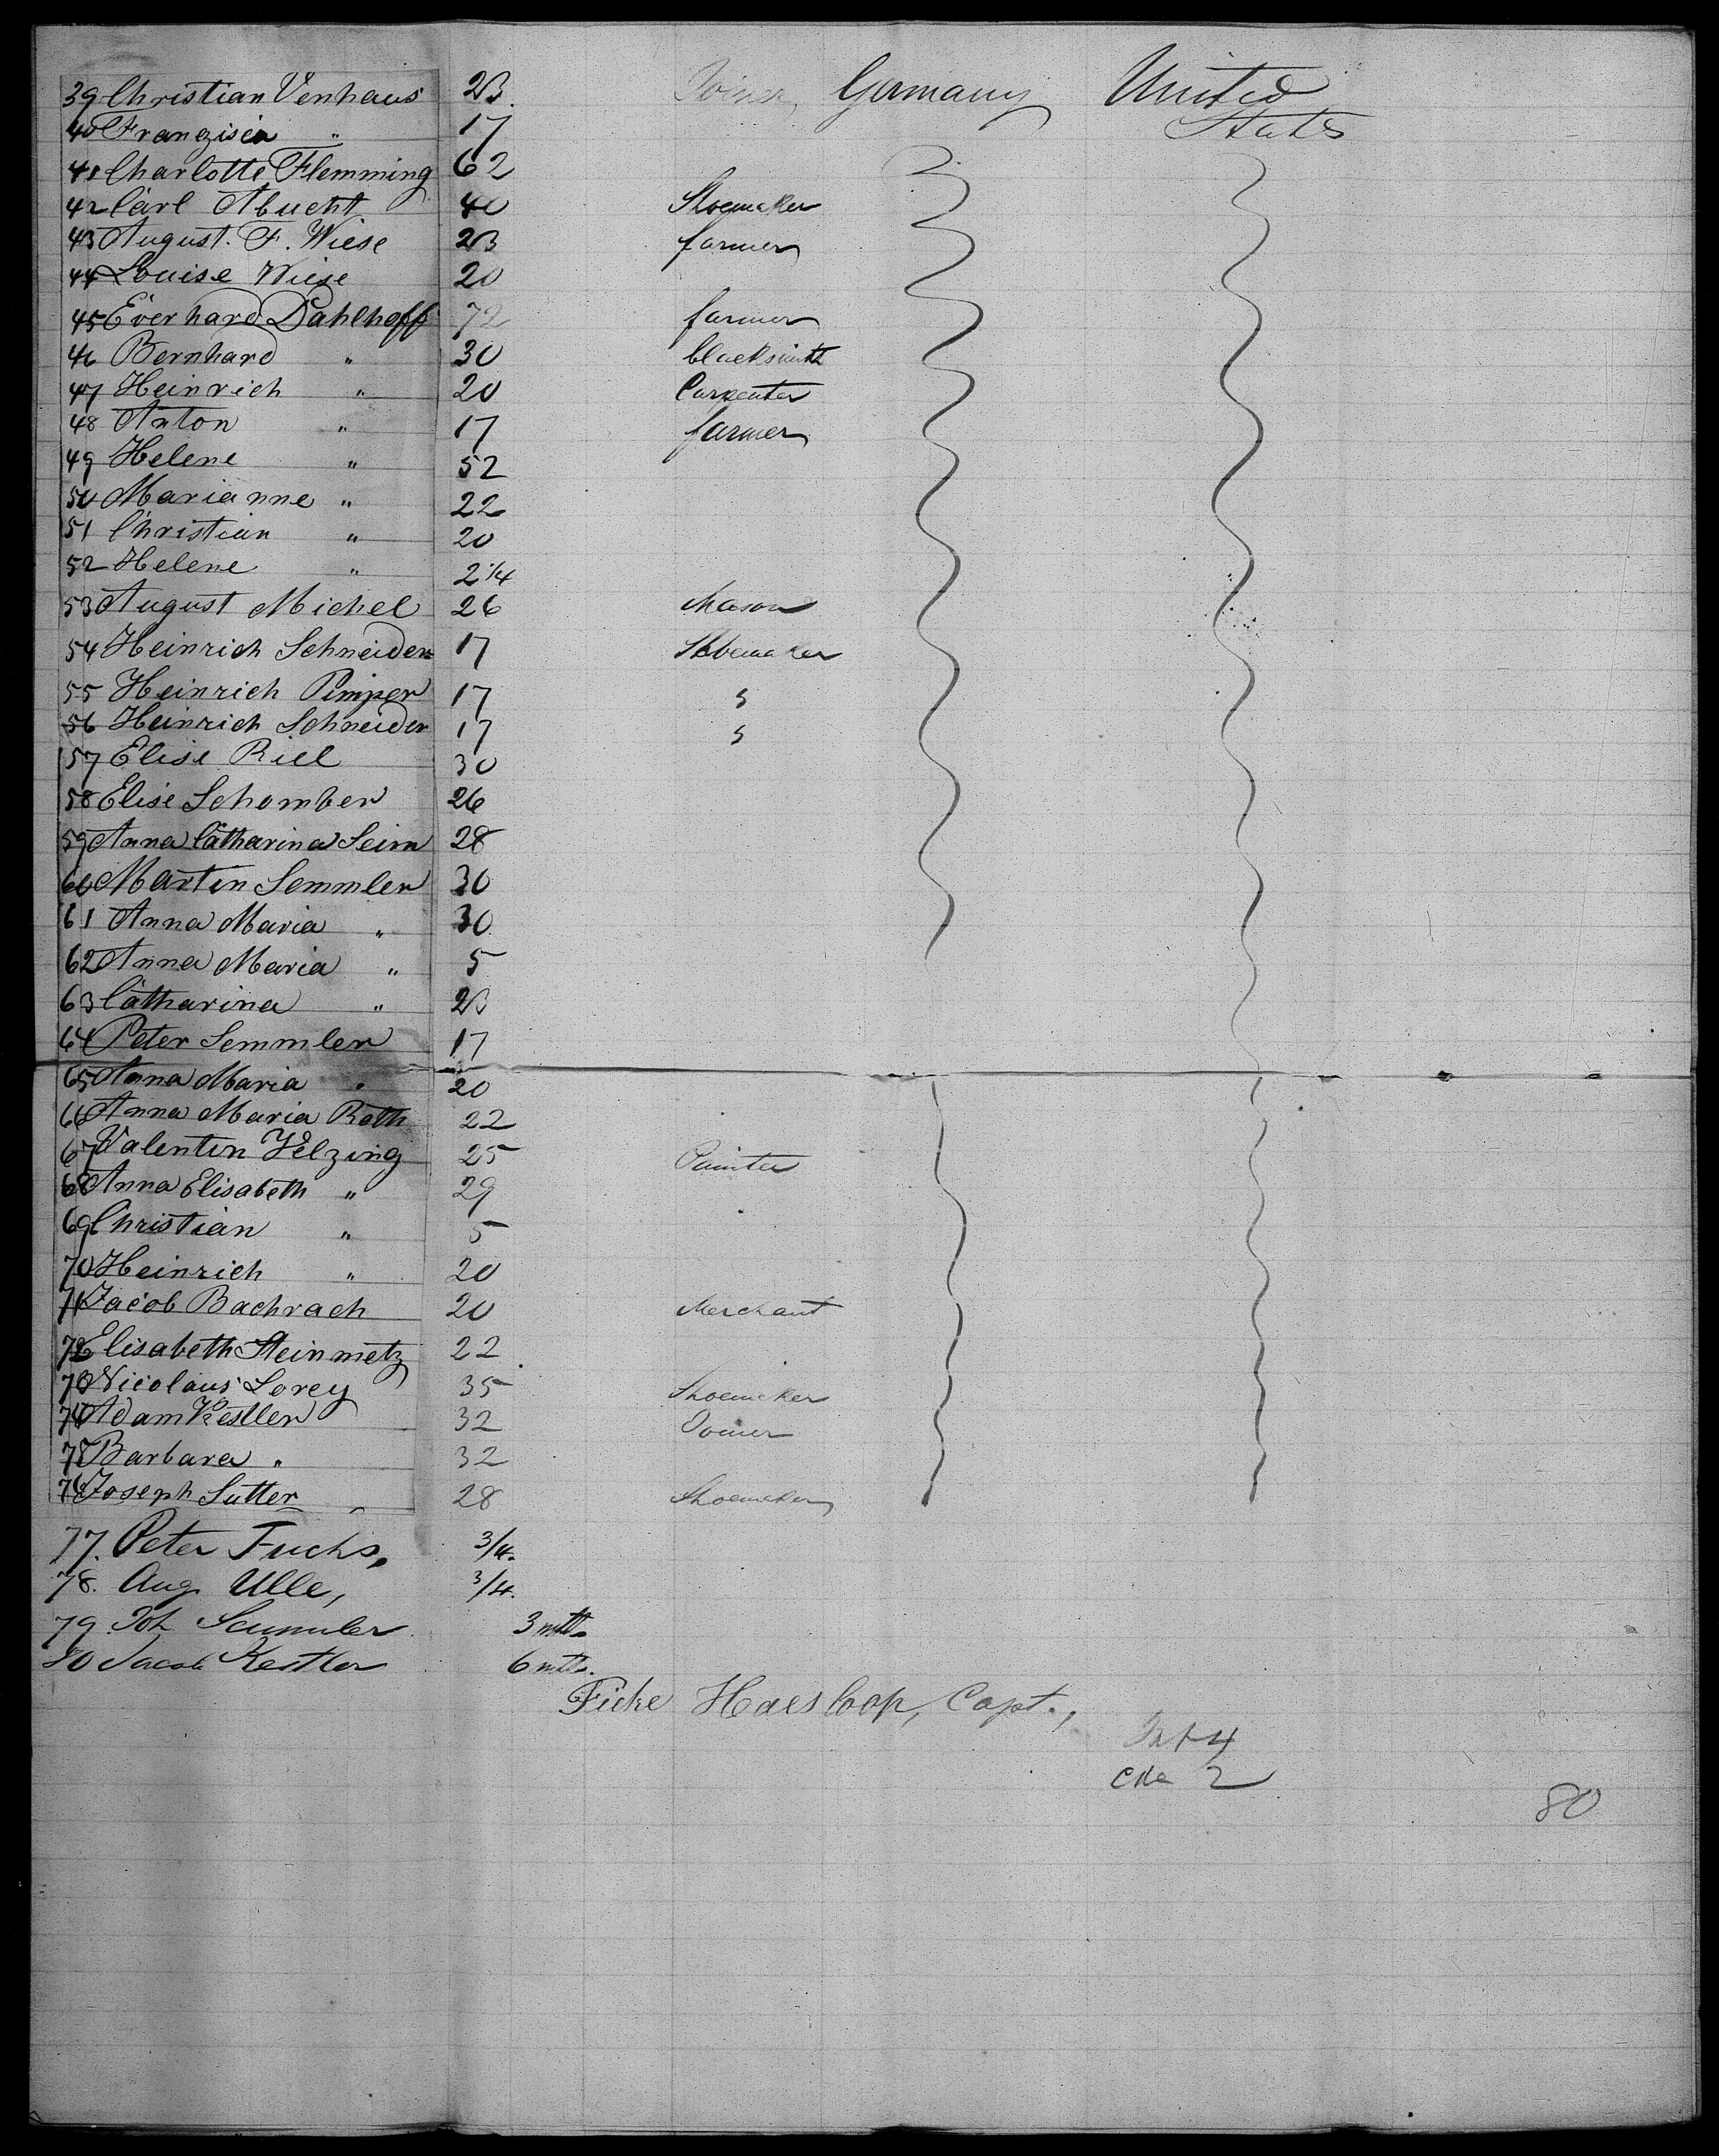 39 Christian Venhaus 23. Joiner, Germany United States
40 Franzisca " 17
41 Charlotte Flemming 62
42 Carl Abucht 40 Shoemaker
43 August. F. Wiese 23 farmer
44 Louise Wiese 20
45 Everhard Dahlhoff 72 farmer
46 Bernhard " 30 blacksmith
47 Heinrich " 20 Carpenter
48 Anton " 17 farmer
49 Helene " 52
50 Marianne " 22
51 Christian " 20
52 Helene " 2 1/4
53 August Michel 26 Mason
54 Heinrich Schneider 17 Shoemaker
55 Heinrich Pimper 17 "
56 Heinrich Schneider 17 "
57 Elise Riel 30
58 Elise Schomber 26
59 Anna Catharina Seim 28
60 Martin Semmler 30
61 Anna Maria " 30
62 Anna Maria " 5
63 Catharina " 23
64 Peter Semmler 17
65 Anna Maria " 20
66 Anna Maria Roth 22
67 Valentin Velzing 25 Painter
68 Anna Elisabeth " 29
69 Christian " 5
70 Heinrich " 20
71 Jacob Bachrach 20 Merchant
72 Elisabeth Steinmetz 22
73 Nicolaus Lorey 35 Shoemaker
74 Adam Kestler 32 Joiner
75 Barbara " 32
76 Joseph Sutter 28 Shoemaker
77. Peter Fuchs, 3/4.
78. Aug. Ulle, 3/4.
79. Joh Semmler 3 mths
80 Jacob Kestler 6 mths.
Ficke Haesloop, Capt.,
Inf 4
Che 2
80